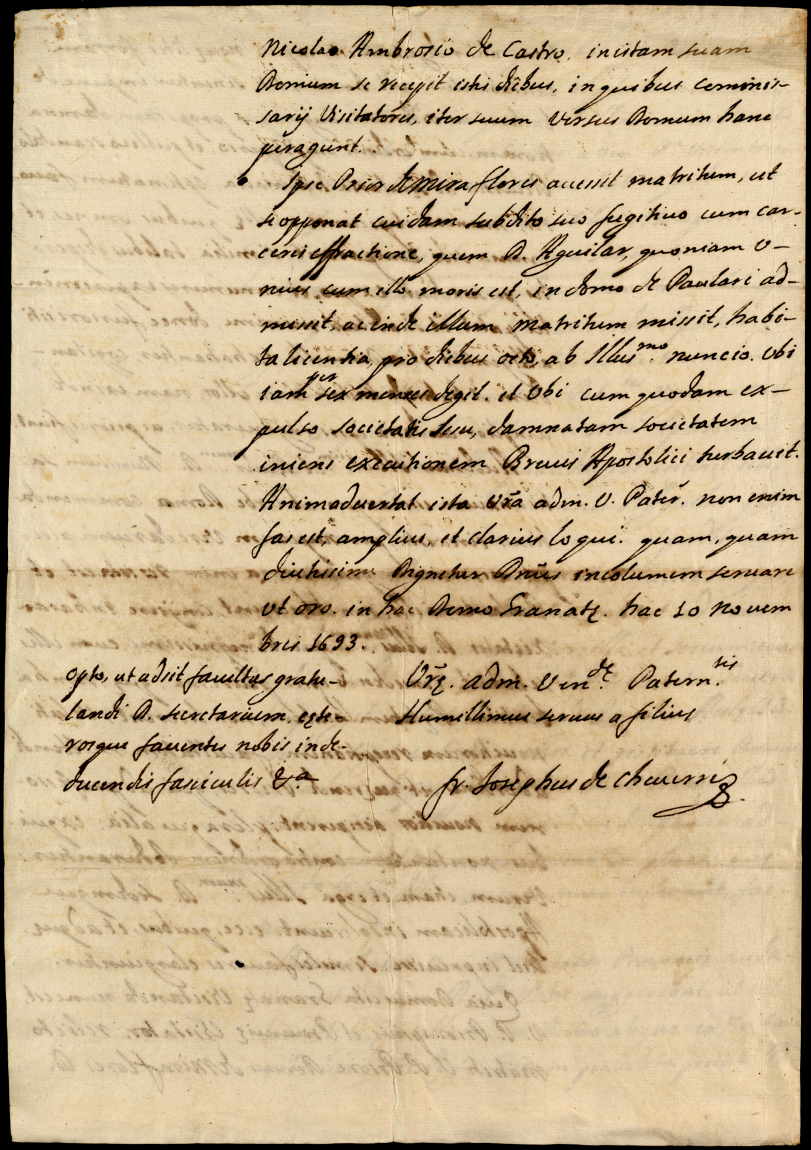 Nicolao Ambrosio de Castro. in istam suam
Domum se recepit istis diebus, in quibus commis-
sarij Visitatores, iter suum versus Domum hanc
peragunt.
Ipse Prior de Miraflores accessit matritum, ut
se opponat cuidam subdito suo fugitivo cum car-
ceris effractione, quem D. Aguilar, quoniam v-
nius cum illo moris est, in domo de Paulari ad-
missit, ac inde illum matritum missit, habi-
ta licentia pro diebus octo, ab Illusmo. nuncio. Vbi
iam per sex menses degit. et Vbi cum quodam ex-
pulso societatis Iesu, damnatam societatem
iniens executionem Brevis Apostolici turbavit.
Animadvertat ista Vra adm. V. Pater. non enim
fas est, amplius, et clarius loqui. quam, quam
diutissime Dignetur Deus incolumem servare
Vt oro. in hac Domo Granatę. hac 10 novem
bris 1693.
Vrę. adm. Vende. Paterntis
Humillimus servus a filius
fr. Josephus de Cheverri
opto, ut adsit facultas gratu-
landi D. secretarium, cęte
rosque faventes nobis in de-
ducendis fasciculis &a